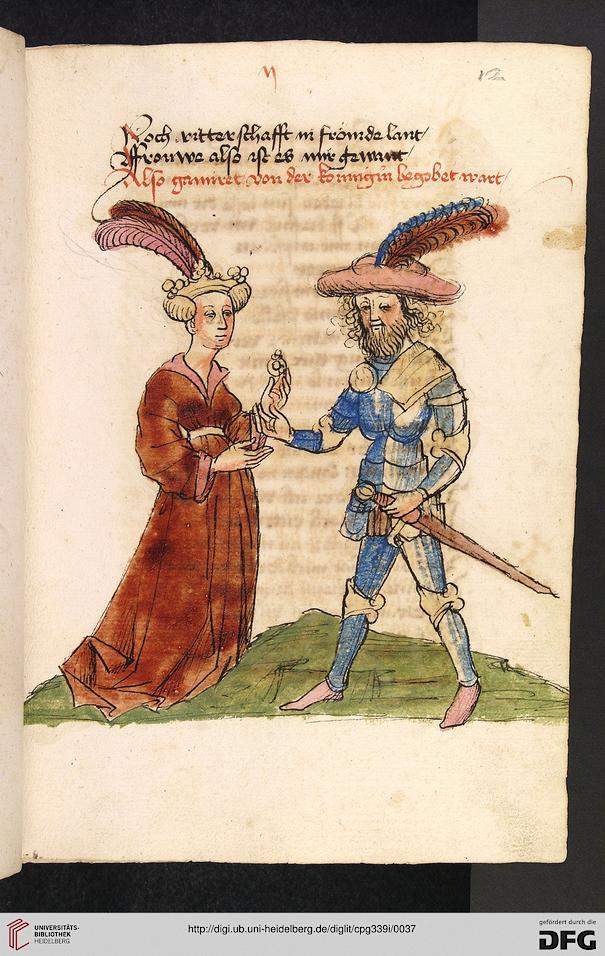 VI
12
Noch ritterschafft in frömde lant
Ffrouwe also ist es mir gewant
Also gamiret von der konnigin begobet wart
UNIVERSITÄTS-
BIBLIOTHEK
HEIDELBERG
http://digi.ub.uni-heidelberg.de/diglit/cpg339i/0037
gefördert durch die
DFG